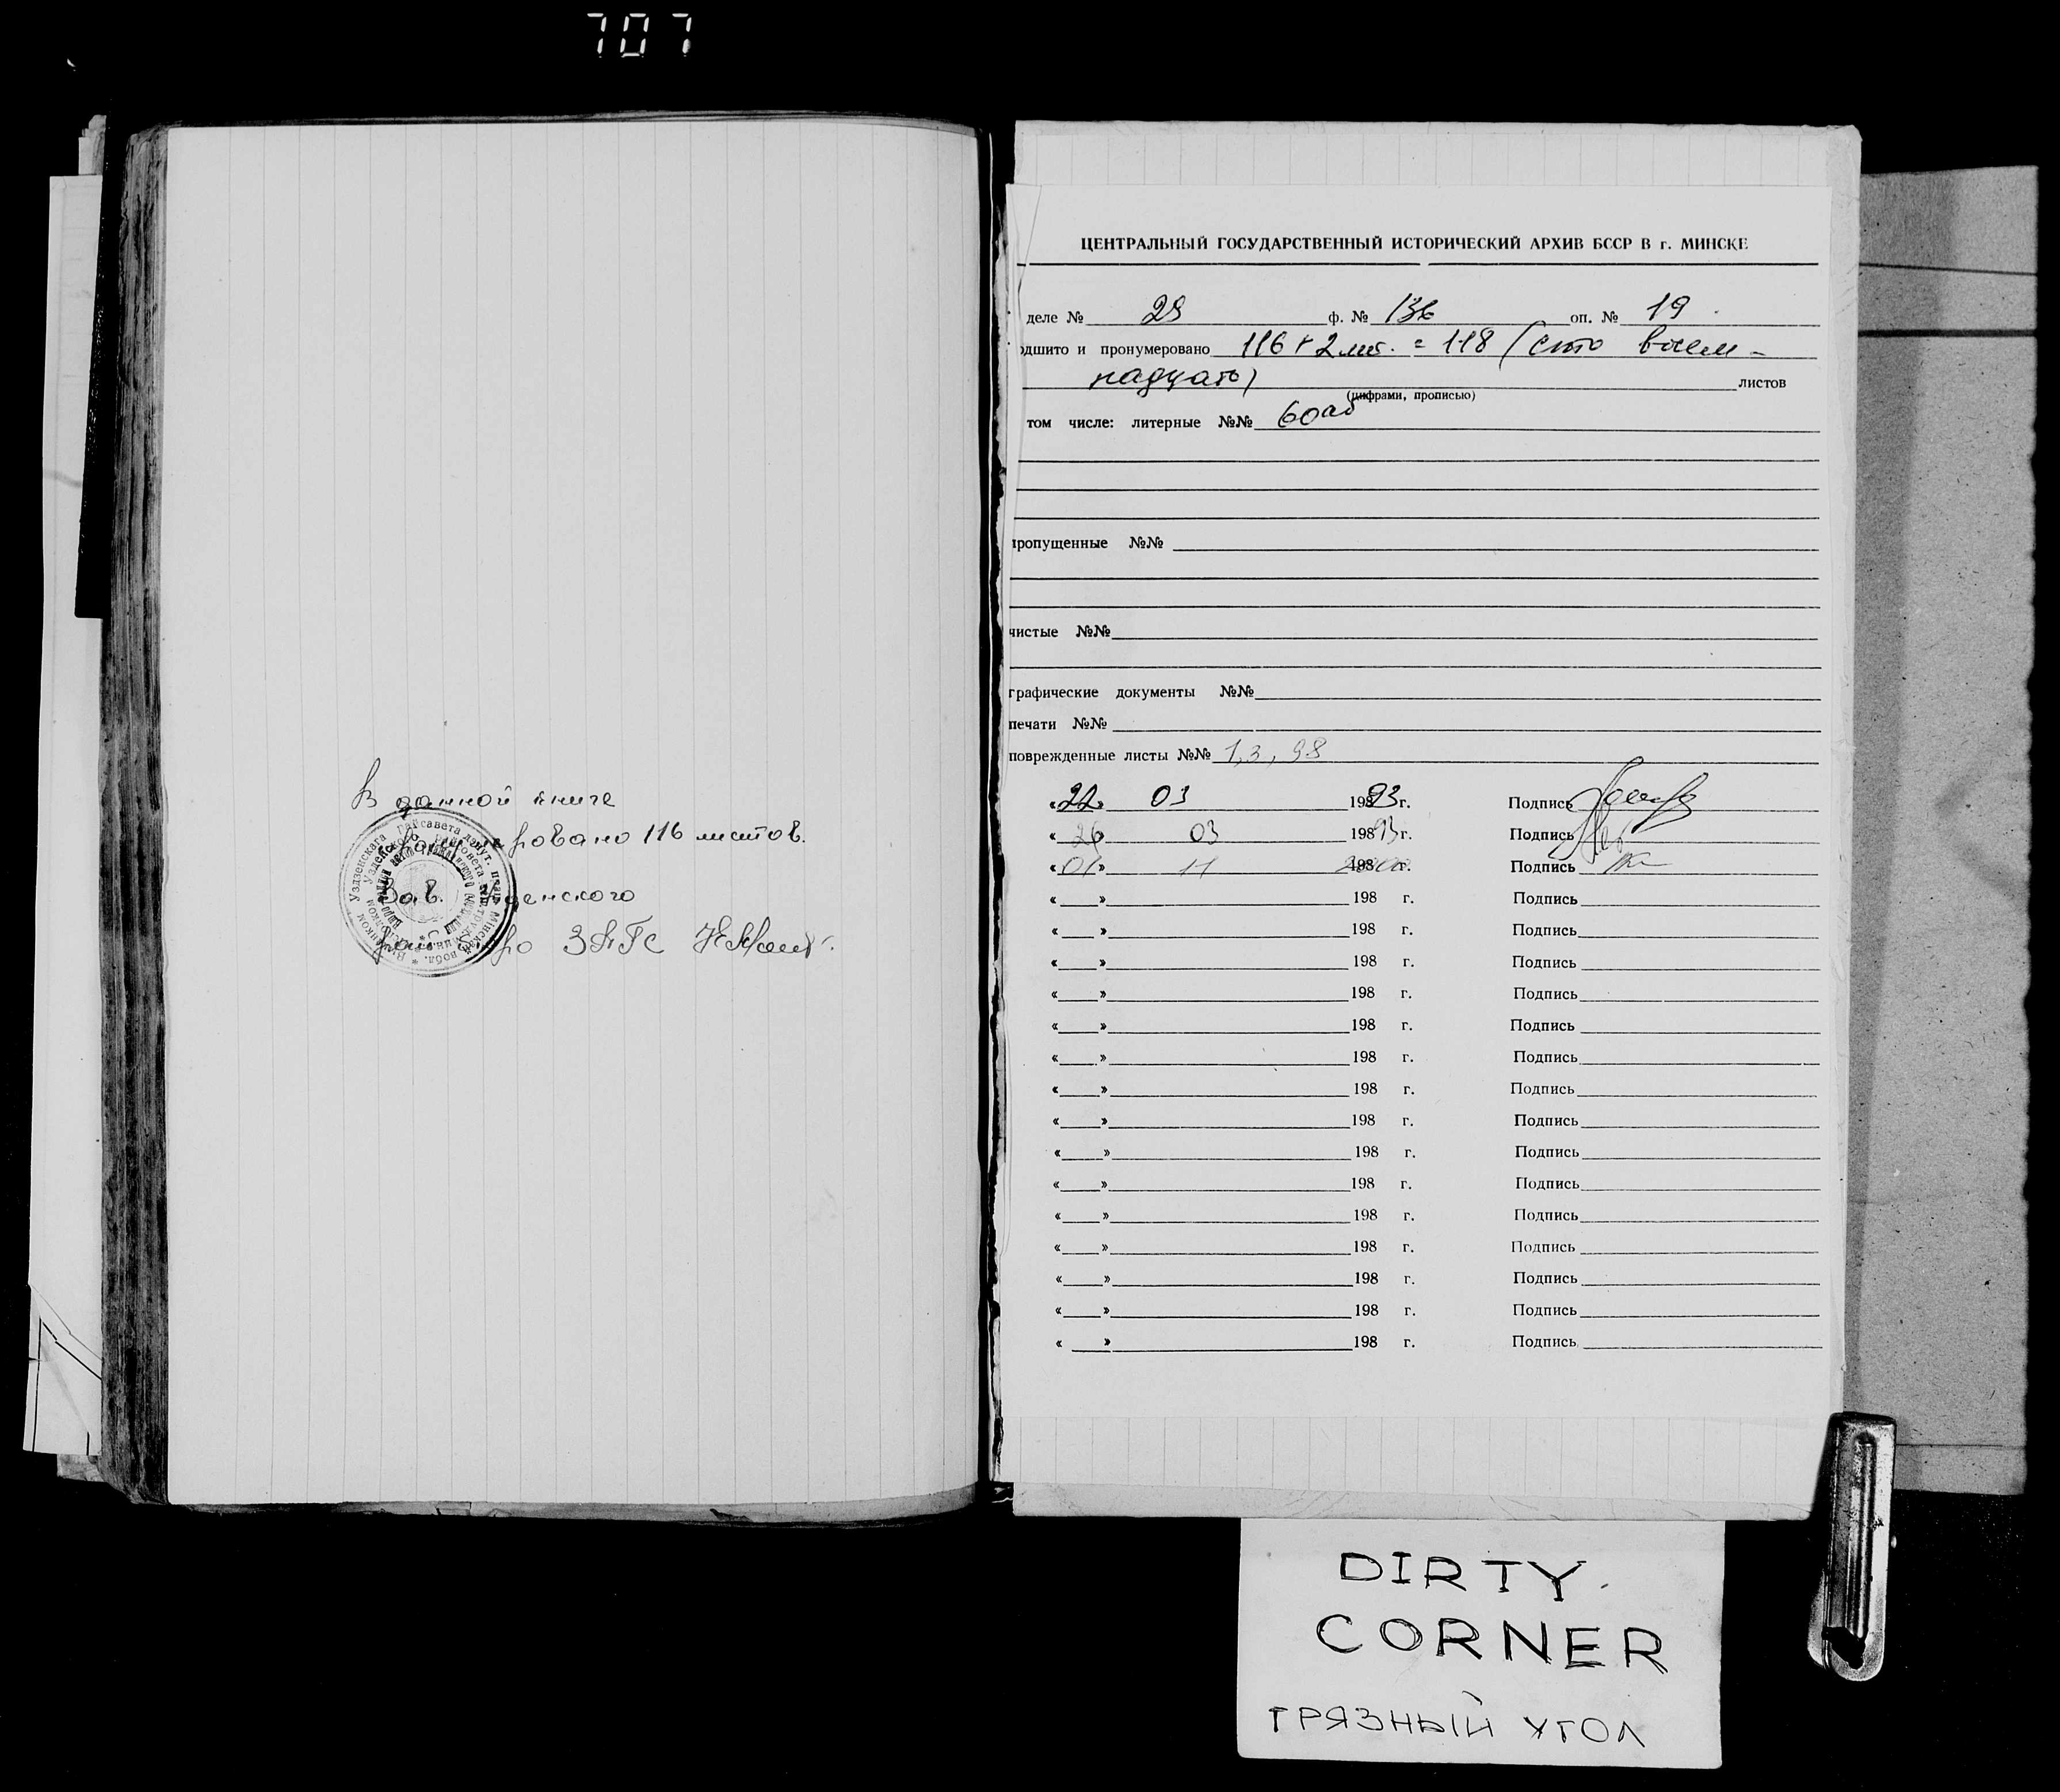 707
В данной книге
пронумеровано 116 листов.
Зав. Узденского
бюро ЗАГС
ЦЕНТРАЛЬНЫЙ ГОСУДАРСТВЕННЫЙ ИСТОРИЧЕСКИЙ АРХИВ БССР В г. МИНСКЕ
деле № 29 ф. № 136 оп. № 19
одшито и пронумеровано 116 + 2 лит. = 118 (сто восем-
надцать) листов
(цифрами, прописью)
том числе: литерные №№ 60аб
пропущенные №№
чистые №№
графические документы №№
печати №№
поврежденные листы №№ 1,3, 98
«22» 03 1993 г. Подпись
«26» 03 19893 г. Подпись
«01» 11 г. Подпись
« » 198 г. Подпись
« » 198 г. Подпись
« » 198 г. Подпись
« » 198 г. Подпись
« » 198 г. Подпись
« » 198 г. Подпись
« » 198 г. Подпись
« » 198 г. Подпись
« » 198 г. Подпись
« » 198 г. Подпись
« » 198 г. Подпись
« » 198 г. Подпись
« » 198 г. Подпись
« » 198 г. Подпись
« » 198 г. Подпись
DIRTY
CORNER
ГРЯЗНЫЙ УГОЛ